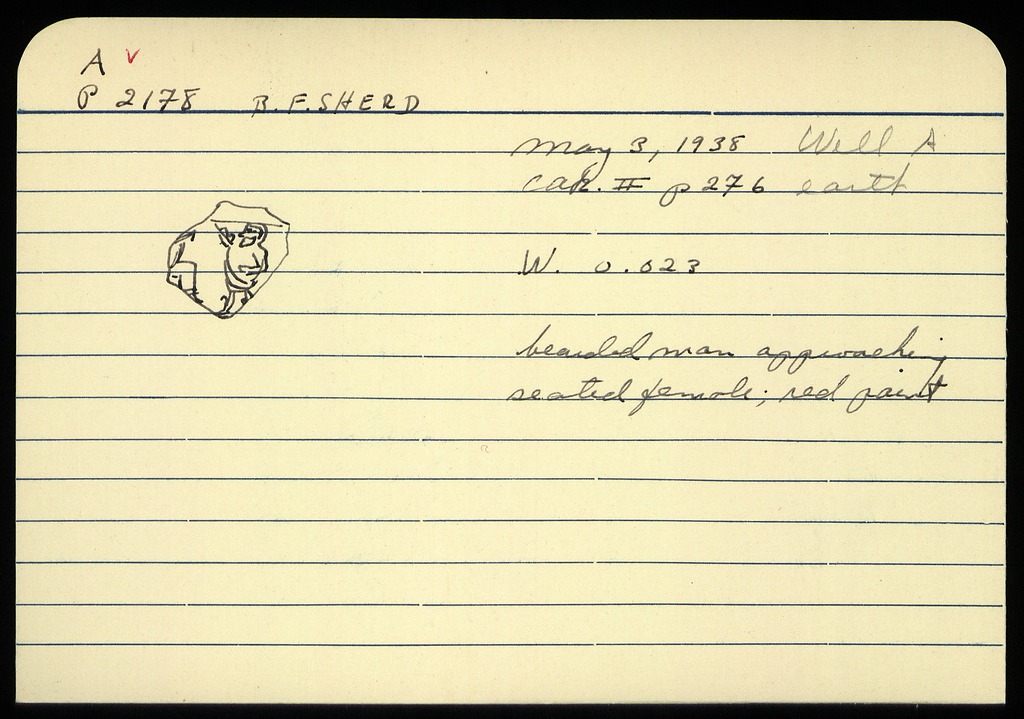 A v
P 2178 B.F. SHERD
May 3, 1938 Well A
car. II p 276 earth
W. 0.023
bearded man approaching
seated female; red paint